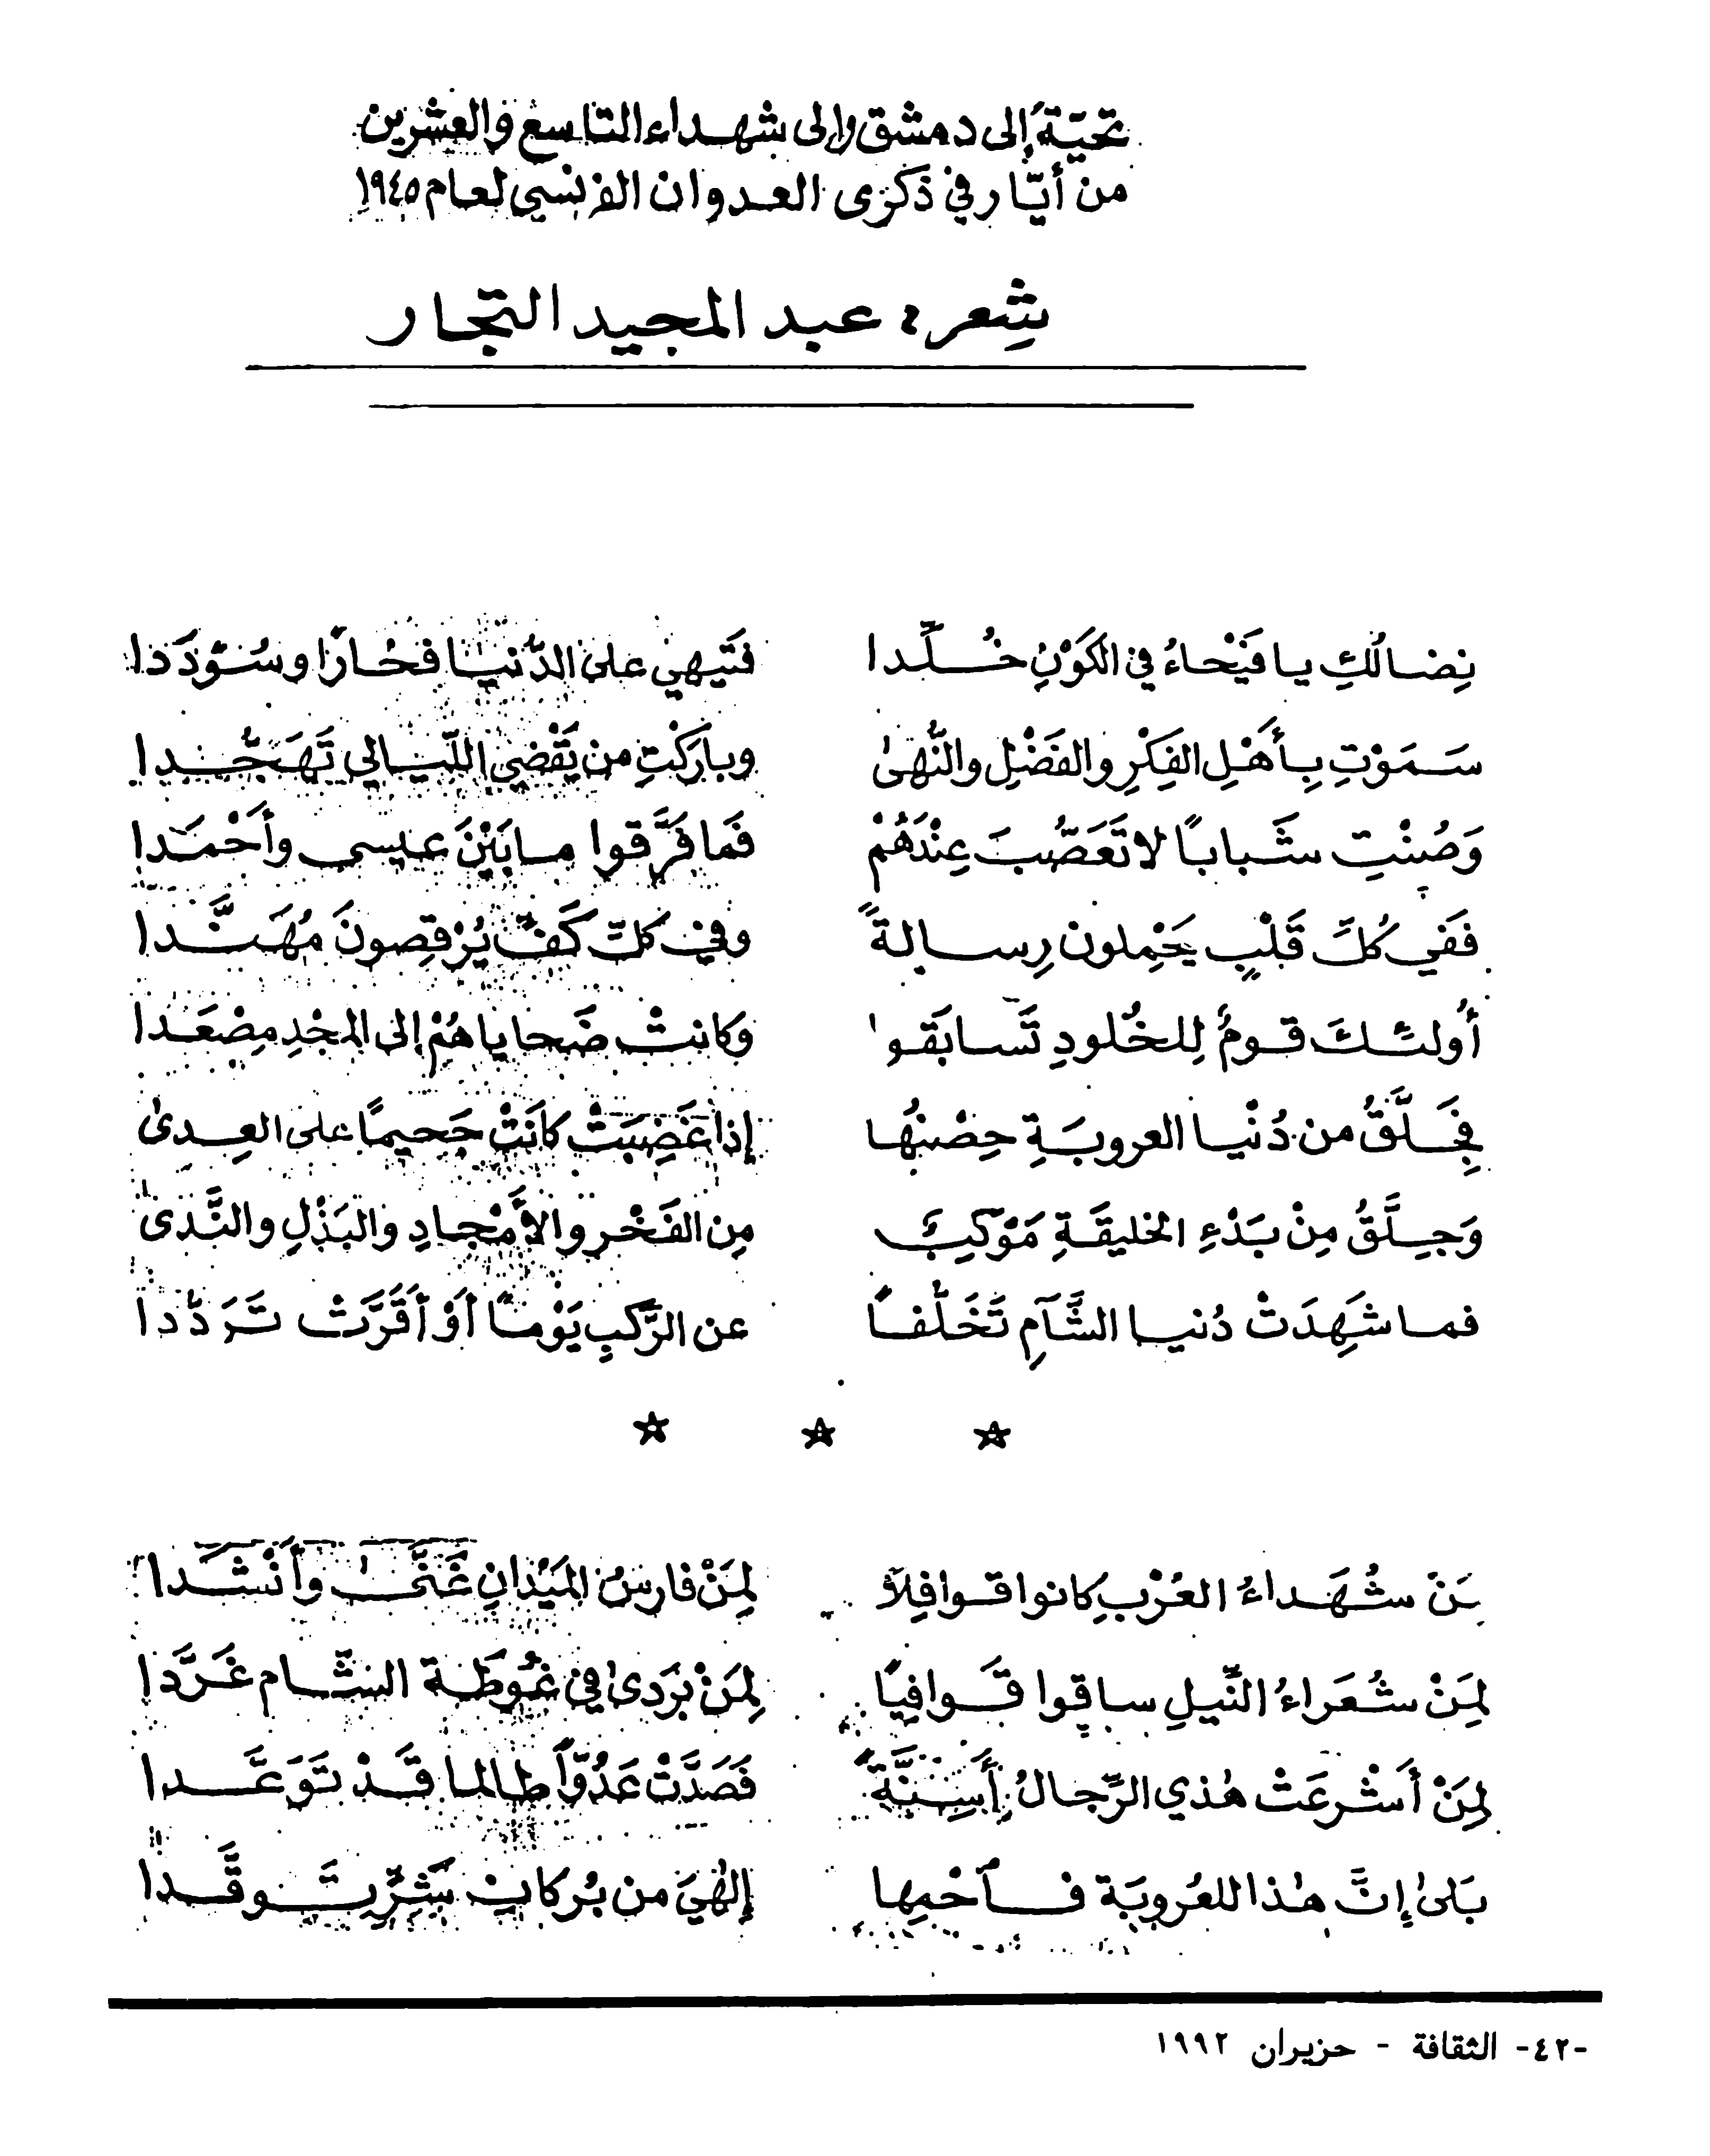 تحيّة إلى دمشق وإلى شهداء التاسع والعشرين
من أيّار في ذكرى العدوان الفرنسي لعام ١٩٤٥
شِعر: عبد المجيد التجار
نِضالُكِ يا فَيْحاءُ في الكَوْنِ خُلِّدا فَتَيهي على الدُّنيا فَخارًا وسُؤْدَدا
سَمَوْتِ بِأَهْلِ الفِكْرِ والفَضْلِ والنُّهىٰ وبارَكْتِ من يَقْضي اللّيالي تَهَجُّدا
وَصُنْتِ شَباباً لا تَعَصُّبَ عِنْدَهُمْ فَما فَرَّقوا ما بَيْنَ عيسى وأَحْمَدا
فَفي كُلِّ قَلْبٍ يَحْمِلون رِسالةً وفي كلِّ كَفٍّ يُرْقِصونَ مُهَنَّدا
أُولئكَ قومٌ لِلخُلودِ تَسابَقوا وَكانتْ ضَحاياهُمْ إلى المجْدِ مِصْعَدا
فَجِلَّقُ من دُنْيا العروبَةِ حِصْنُها إذا غَضِبَتْ كانَتْ جَحيمًا على العِدىٰ
وَجِلَّقُ مِنْ بَدْءِ الخليقَةِ مَوْكِبٌ مِن الفَخْرِ والأَمْجادِ والبَذْلِ والنَّدىٰ
فما شَهِدَتْ دُنيا الشَّآمِ تَخَلُّفاً عن الرَّكبِ يَوْماً أَوْ أَقَرَّتْ تَرَدُّدا
☆ ☆ ☆
شُهَداءُ العُرْبِ كانوا قوافِلاً لِمَنْ فارسُ المَيْدانِ غَنّىٰ وأَنْشَدا
لِمَنْ شُعَراءُ النّيلِ ساقوا قَوافِيًا لِمَنْ بَرَدىٰ في غُوطَة الشّام غَرَّدا
لِمَنْ أَشْرعَتْ هٰذي الرِّجالُ أَسِنَّةً فَصَدَّتْ عَدُوّاً طالما قَدْ تَوَعَّدا
بَلىٰ إِنَّ هٰذا للعُروبَة فآحْمِها إلهٰيَ من بُركانِ شَرٍّ توقَّدا
-٤٢- الثقافة - حزيران ١٩٩٢